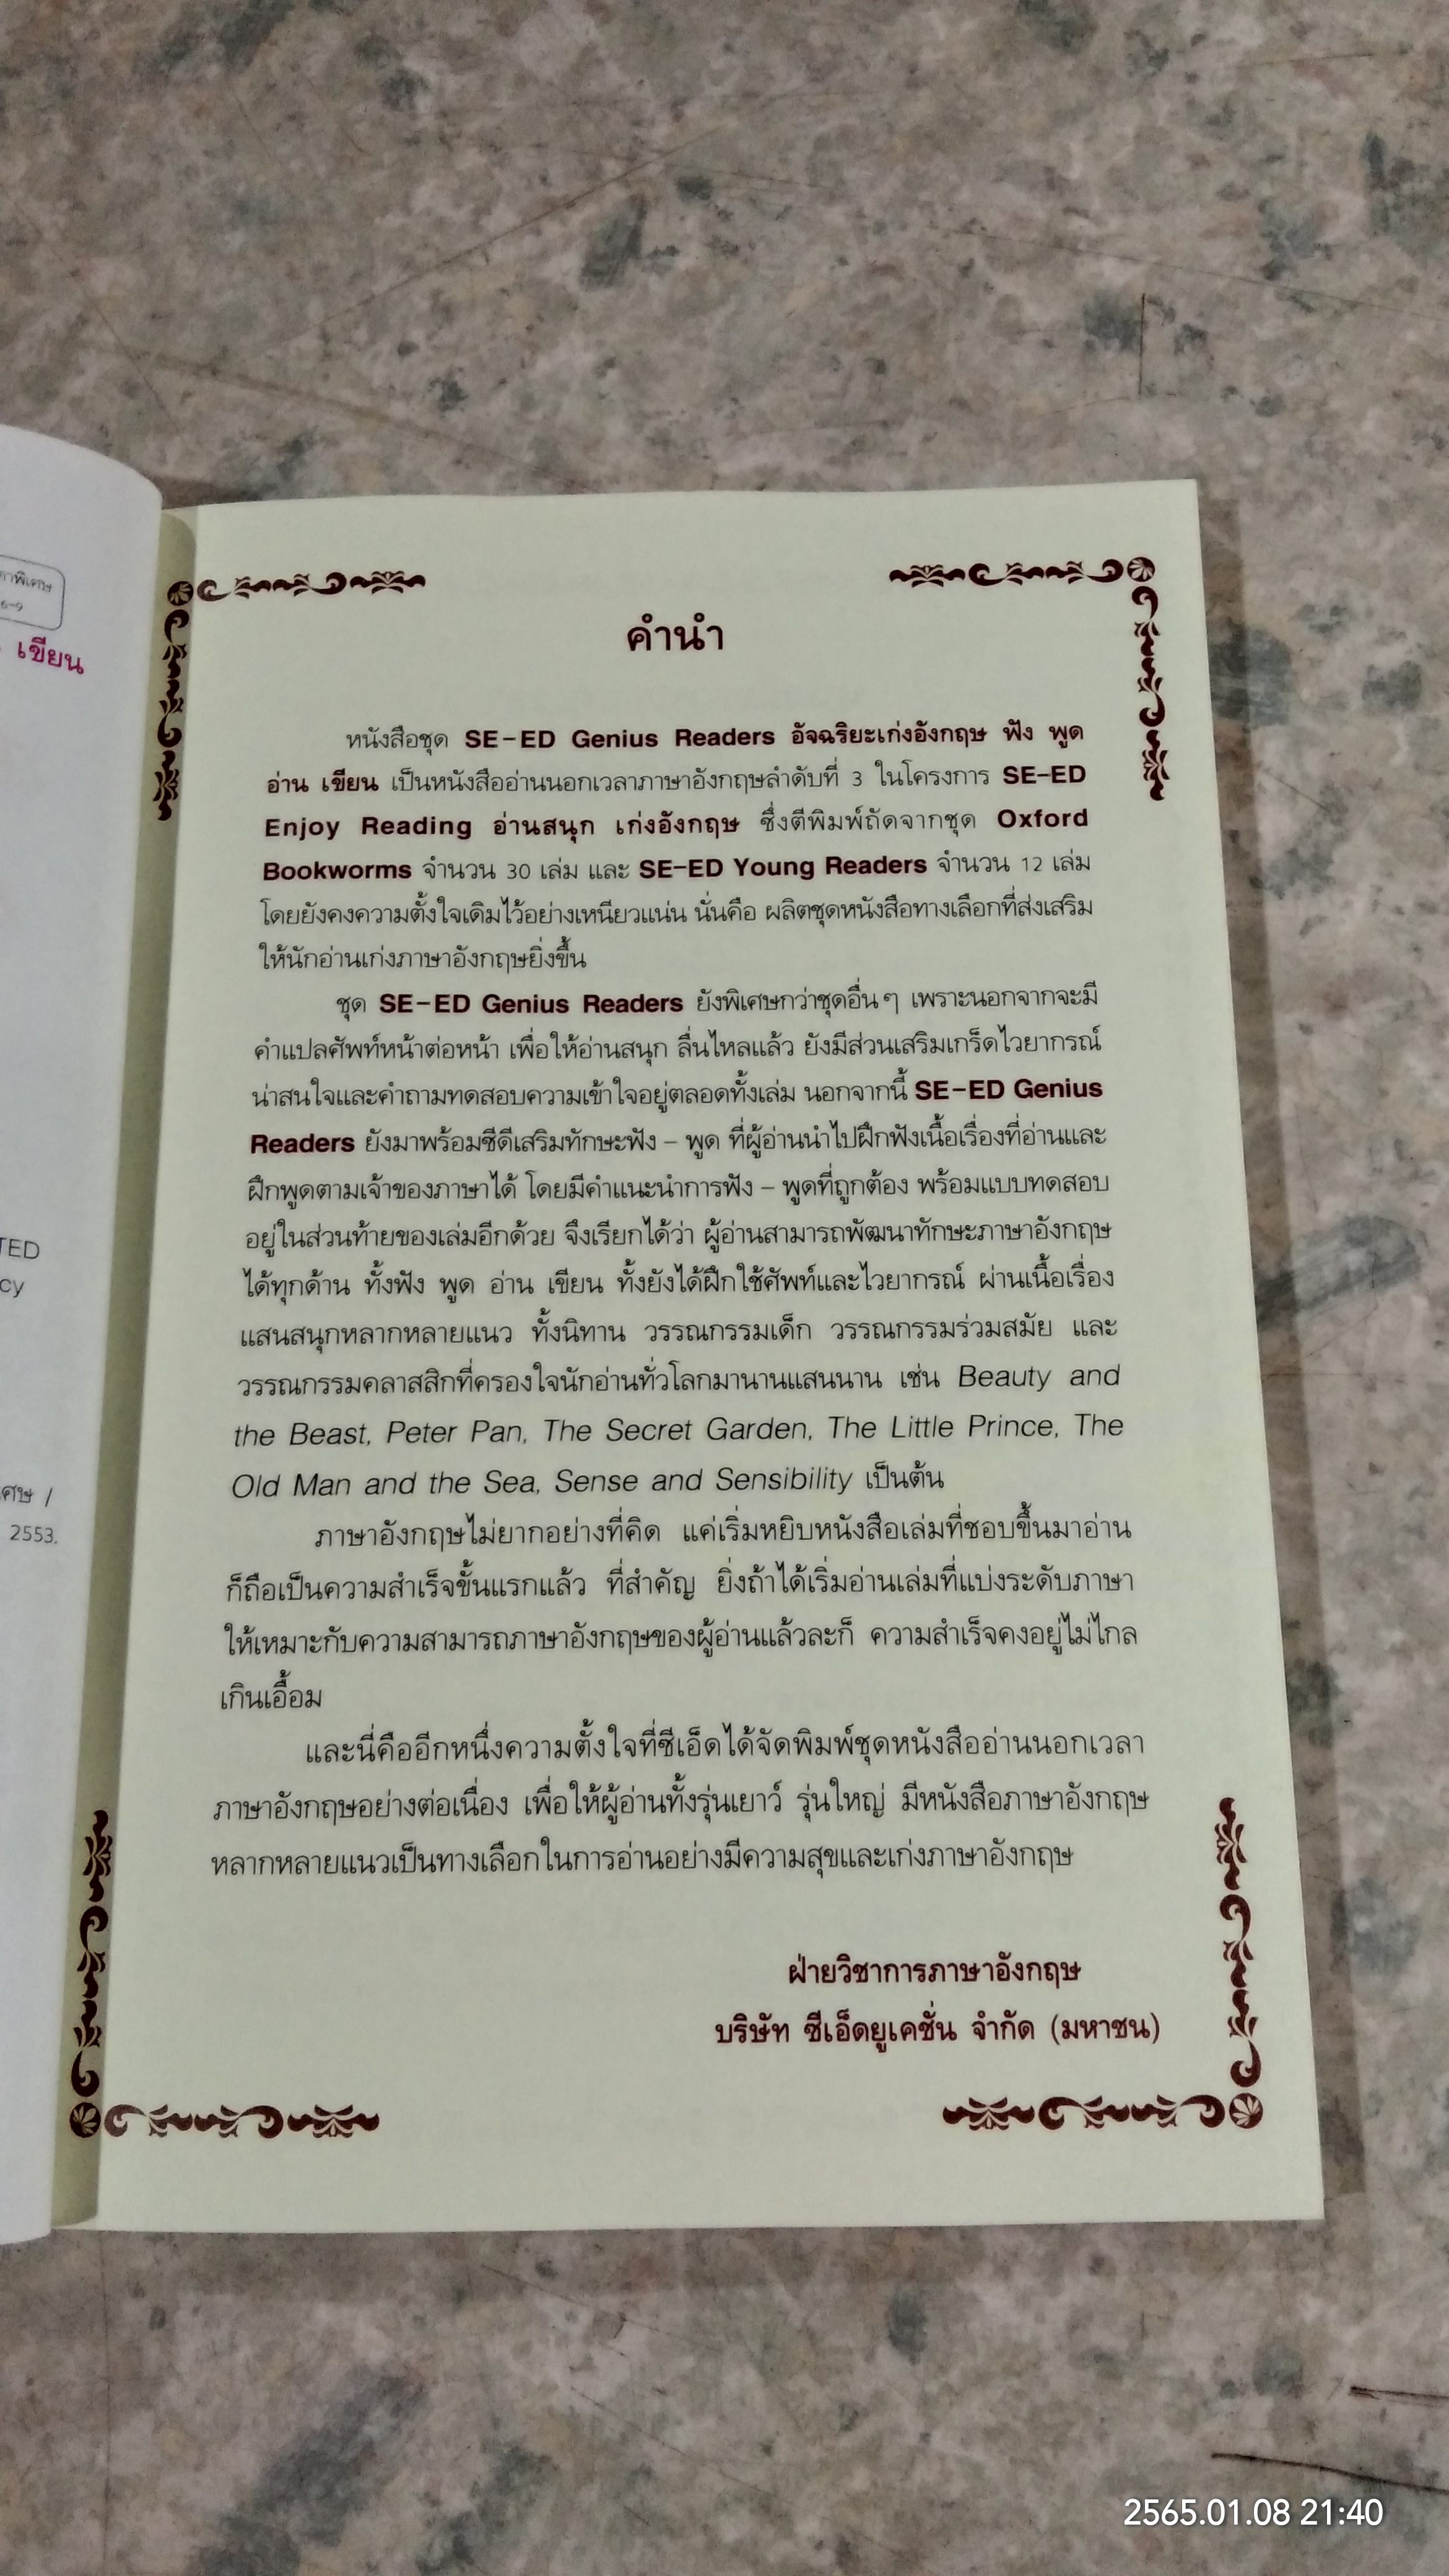 าพิเศษ
6-9
เขียน
TED
cy
ศษ /
2553.
คำนำ
หนังสือชุด SE-ED Genius Readers อัจฉริยะเก่งอังกฤษ ฟัง พูด
อ่าน เขียน เป็นหนังสืออ่านนอกเวลาภาษาอังกฤษลำดับที่ 3 ในโครงการ SE-ED
Enjoy Reading อ่านสนุก เก่งอังกฤษ ซึ่งตีพิมพ์ถัดจากชุด Oxford
Bookworms จำนวน 30 เล่ม และ SE-ED Young Readers จำนวน 12 เล่ม
โดยยังคงความตั้งใจเดิมไว้อย่างเหนียวแน่น นั่นคือ ผลิตชุดหนังสือทางเลือกที่ส่งเสริม
ให้นักอ่านเก่งภาษาอังกฤษยิ่งขึ้น
ชุด SE-ED Genius Readers ยังพิเศษกว่าชุดอื่นๆ เพราะนอกจากจะมี
คำแปลศัพท์หน้าต่อหน้า เพื่อให้อ่านสนุก ลื่นไหลแล้ว ยังมีส่วนเสริมเกร็ดไวยากรณ์
น่าสนใจและคำถามทดสอบความเข้าใจอยู่ตลอดทั้งเล่ม นอกจากนี้ SE-ED Genius
Readers ยังมาพร้อมซีดีเสริมทักษะฟัง – พูด ที่ผู้อ่านนำไปฝึกฟังเนื้อเรื่องที่อ่านและ
ฝึกพูดตามเจ้าของภาษาได้ โดยมีคำแนะนำการฟัง – พูดที่ถูกต้อง พร้อมแบบทดสอบ
อยู่ในส่วนท้ายของเล่มอีกด้วย จึงเรียกได้ว่า ผู้อ่านสามารถพัฒนาทักษะภาษาอังกฤษ
ได้ทุกด้าน ทั้งฟัง พูด อ่าน เขียน ทั้งยังได้ฝึกใช้ศัพท์และไวยากรณ์ ผ่านเนื้อเรื่อง
แสนสนุกหลากหลายแนว ทั้งนิทาน วรรณกรรมเด็ก วรรณกรรมร่วมสมัย และ
วรรณกรรมคลาสสิกที่ครองใจนักอ่านทั่วโลกมานานแสนนาน เช่น Beauty and
the Beast, Peter Pan, The Secret Garden, The Little Prince, The
Old Man and the Sea, Sense and Sensibility เป็นต้น
ภาษาอังกฤษไม่ยากอย่างที่คิด แค่เริ่มหยิบหนังสือเล่มที่ชอบขึ้นมาอ่าน
ก็ถือเป็นความสำเร็จขั้นแรกแล้ว ที่สำคัญ ยิ่งถ้าได้เริ่มอ่านเล่มที่แบ่งระดับภาษา
ให้เหมาะกับความสามารถภาษาอังกฤษของผู้อ่านแล้วละก็ ความสำเร็จคงอยู่ไม่ไกล
เกินเอื้อม
และนี่คืออีกหนึ่งความตั้งใจที่ซีเอ็ดได้จัดพิมพ์ชุดหนังสืออ่านนอกเวลา
ภาษาอังกฤษอย่างต่อเนื่อง เพื่อให้ผู้อ่านทั้งรุ่นเยาว์ รุ่นใหญ่ มีหนังสือภาษาอังกฤษ
หลากหลายแนวเป็นทางเลือกในการอ่านอย่างมีความสุขและเก่งภาษาอังกฤษ
ฝ่ายวิชาการภาษาอังกฤษ
บริษัท ซีเอ็ดยูเคชั่น จำกัด (มหาชน)
2565.01.08 21:40